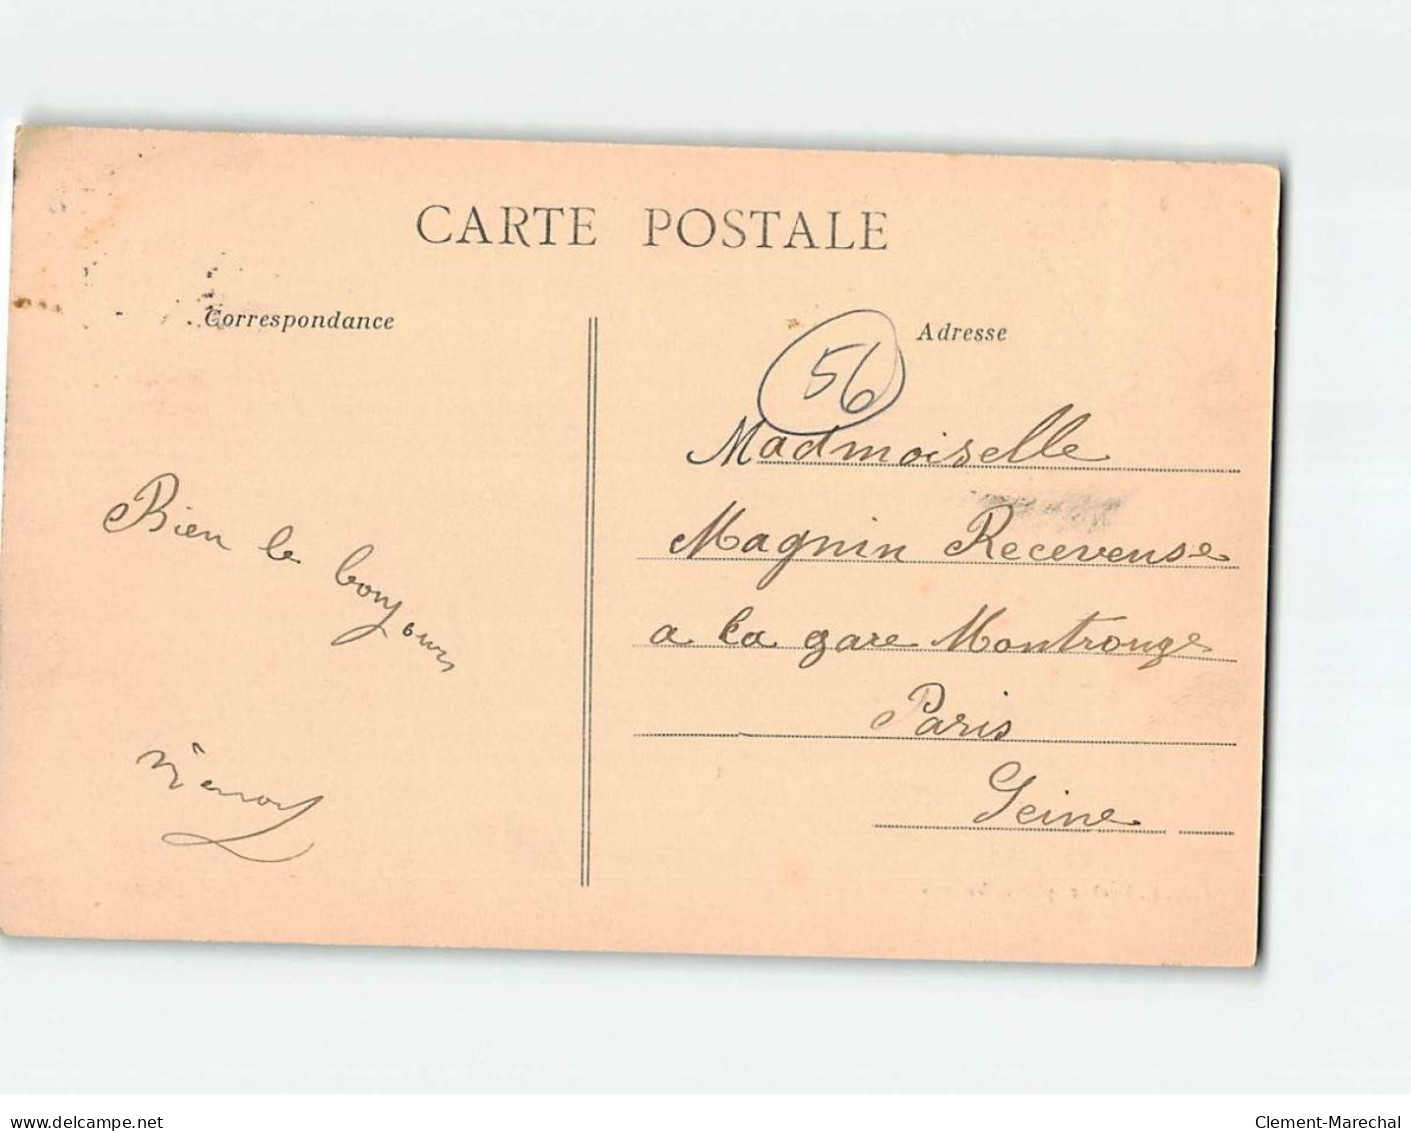 CARTE POSTALE
Correspondance
Adresse
56
Madmoiselle
Magnin Receveuse
a la gare Montrouge
Paris
Seine
Bien le bonjour
www.delcampe.net
Clement-Marechal